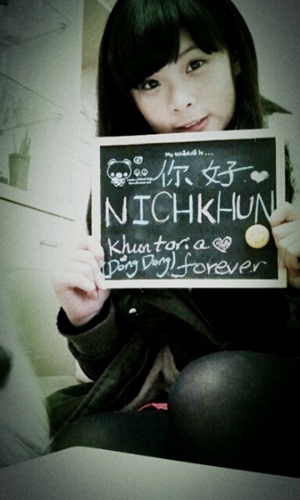 My wishlist is ...
你、好
NICHKHUN
Khuntoria
(Dong Dong) forever